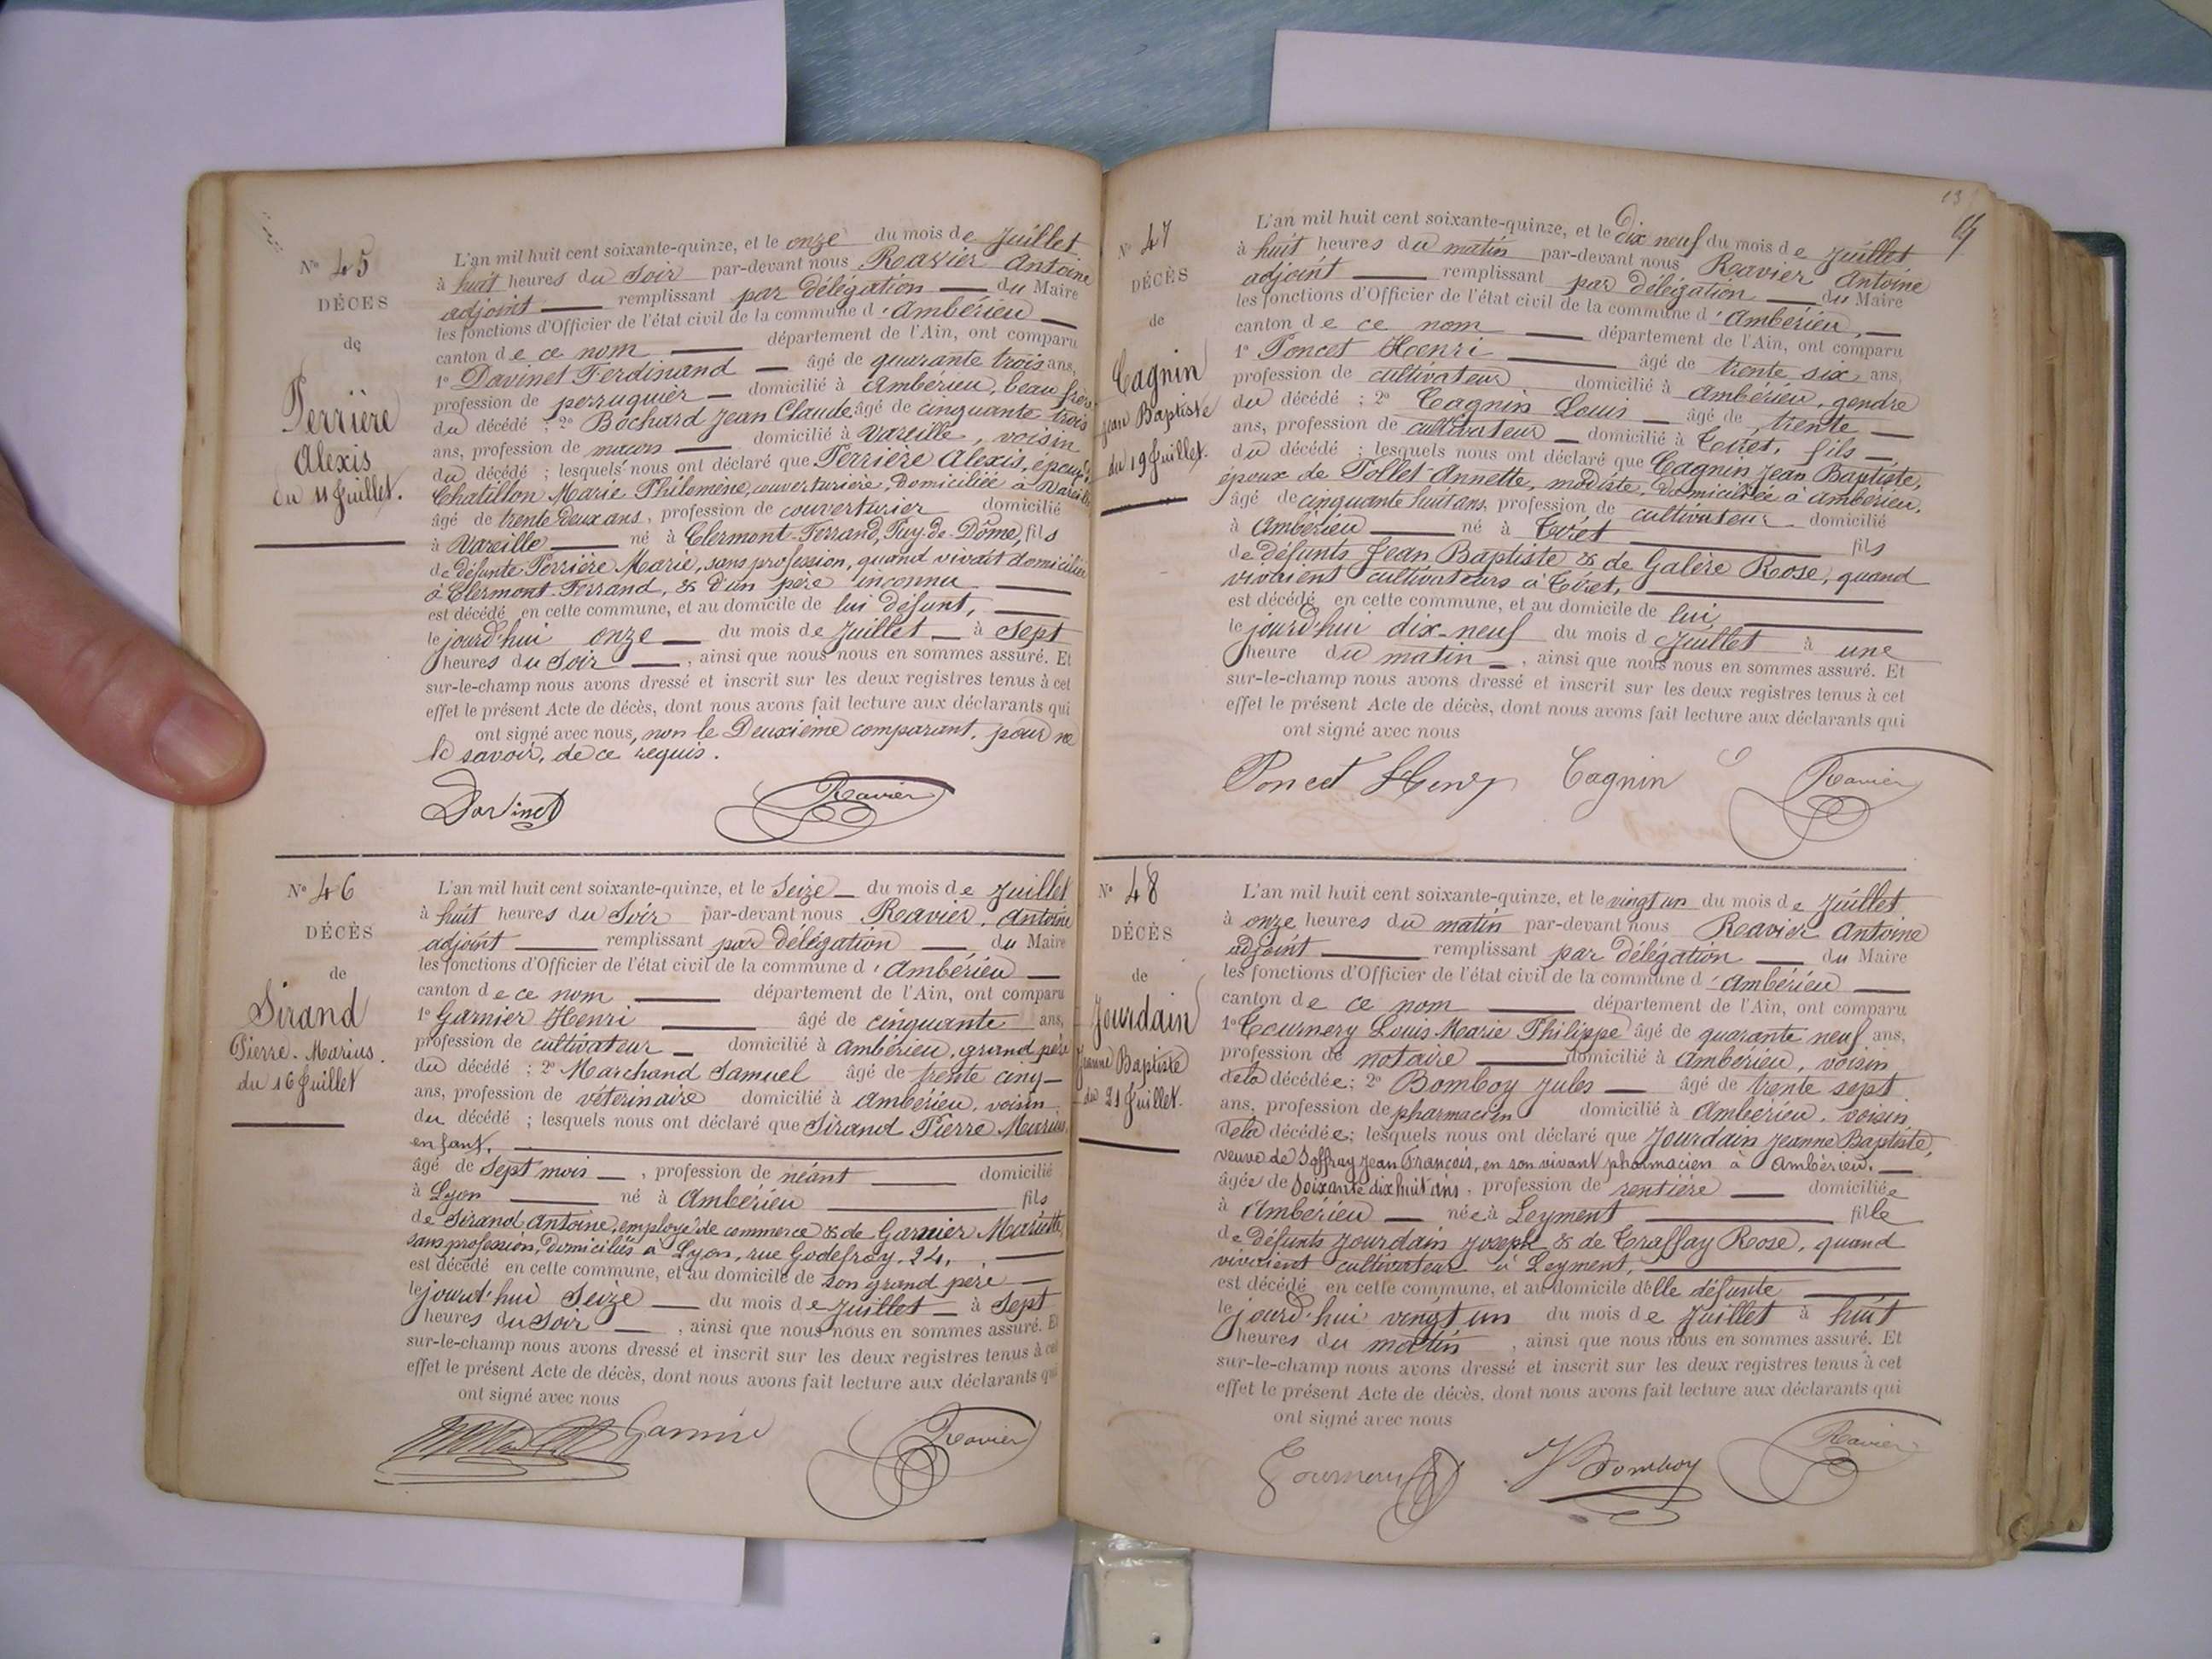 N° 45
DÉCÈS
de
Perrière
Alexis
du 11 Juillet.
L'an mil huit cent soixante-quinze, et le onze du mois de Juillet
à huit heures du Soir par-devant nous Ravier Antoine
adjoint remplissant par délégation du Maire
les fonctions d'Officier de l'état civil de la commune d'Ambérieu
canton de ce nom département de l'Ain, ont comparu
1° Davinet Ferdinand âgé de quarante trois ans,
profession de perruquier domicilié à Ambérieu, beau frère
du décédé ; 2° Bochard Jean Claude âgé de cinquante trois
ans, profession de maçon domicilié à Vareille, voisin
du décédé ; lesquels nous ont déclaré que Perrière Alexis, époux de
Chatillon Marie Philomène, couverturière, domiciliée à Vareille
âgé de trente deux ans, profession de couverturier domicilié
à Vareille né à Clermont-Ferrand, Puy-de-Dôme, fils
de défunte Perrière Marie, sans profession, quand vivait domiciliée
à Clermont-Ferrand, & d'un père inconnu
est décédé en cette commune, et au domicile de lui défunt,
le jourd'hui onze du mois de Juillet à Sept
heures du Soir, ainsi que nous nous en sommes assuré. Et
sur-le-champ nous avons dressé et inscrit sur les deux registres tenus à cet
effet le présent Acte de décès, dont nous avons fait lecture aux déclarants qui
ont signé avec nous, non le Deuxième comparant, pour ne
le savoir, de ce requis.
Davinet Ravier
N° 46
DÉCÈS
de
Sirand
Pierre-Marius.
du 16 Juillet
L'an mil huit cent soixante-quinze, et le Seize du mois de Juillet
à huit heures du Soir par-devant nous Ravier, Antoine
adjoint remplissant par délégation du Maire
les fonctions d'Officier de l'état civil de la commune d'Ambérieu
canton de ce nom département de l'Ain, ont comparu
1° Garnier Henri âgé de cinquante ans,
profession de cultivateur domicilié à Ambérieu, grand père
du décédé ; 2° Marchand Samuel âgé de trente cinq
ans, profession de vétérinaire domicilié à Ambérieu, voisin
du décédé ; lesquels nous ont déclaré que Sirand Pierre Marius,
enfant,
âgé de Sept mois, profession de néant domicilié
à Lyon né à Ambérieu fils
de Sirand Antoine, employé de commerce & de Garnier Mariette,
sans profession, domiciliés à Lyon, rue Godefroy, 24,
est décédé en cette commune, et au domicile de son grand père
le jourd'hui Seize du mois de Juillet à Sept
heures du Soir, ainsi que nous nous en sommes assuré. Et
sur-le-champ nous avons dressé et inscrit sur les deux registres tenus à cet
effet le présent Acte de décès, dont nous avons fait lecture aux déclarants qui
ont signé avec nous
Garnier Ravier
13
N° 47
DÉCÈS
de
Cagnin
Jean Baptiste
du 19 Juillet.
L'an mil huit cent soixante-quinze, et le Dix neuf du mois de Juillet
à huit heures du matin par-devant nous Ravier Antoine
adjoint remplissant par délégation du Maire
les fonctions d'Officier de l'état civil de la commune d'Ambérieu,
canton de ce nom département de l'Ain, ont comparu
1° Poncet Henri âgé de trente six ans,
profession de cultivateur domicilié à Ambérieu, gendre
du décédé ; 2° Cagnin Louis âgé de trente
ans, profession de cultivateur domicilié à Tiret, fils
du décédé ; lesquels nous ont déclaré que Cagnin Jean Baptiste,
époux de Pollet Annette, modiste, domiciliée à Ambérieu,
âgé de cinquante huit ans, profession de cultivateur domicilié
à Ambérieu né à Tiret fils
de défunts Jean Baptiste & de Galère Rose, quand
vivaient cultivateurs à Tiret,
est décédé en cette commune, et au domicile de lui,
le jourd'hui dix-neuf du mois d Juillet à une
heure du matin, ainsi que nous nous en sommes assuré. Et
sur-le-champ nous avons dressé et inscrit sur les deux registres tenus à cet
effet le présent Acte de décès, dont nous avons fait lecture aux déclarants qui
ont signé avec nous
Poncet Henry Cagnin Ravier
N° 48
DÉCÈS
de
Jourdain
Jeanne Baptiste
du 21 Juillet.
L'an mil huit cent soixante-quinze, et le vingt un du mois de Juillet
à onze heures du matin par-devant nous Ravier Antoine
adjoint remplissant par délégation du Maire
les fonctions d'Officier de l'état civil de la commune d'Ambérieu
canton de ce nom département de l'Ain, ont comparu
1° Tournery Louis Marie Philippe âgé de quarante neuf ans,
profession de notaire domicilié à Ambérieu, voisin
de la décédée ; 2° Bomboy Jules âgé de trente sept
ans, profession de pharmacien domicilié à Ambérieu, voisin
de la décédée ; lesquels nous ont déclaré que Jourdain Jeanne Baptiste,
veuve de Soffray Jean François, en son vivant pharmacien à Ambérieu,
âgée de Soixante dix huit ans, profession de rentière domiciliée
à Ambérieu née à Leyment fille
de défunts Jourdain Joseph & de Traffay Rose, quand
vivaient cultivateurs à Leyment,
est décédé en cette commune, et au domicile d'elle défunte
le jourd'hui vingt un du mois de Juillet à huit
heures du matin, ainsi que nous nous en sommes assuré. Et
sur-le-champ nous avons dressé et inscrit sur les deux registres tenus à cet
effet le présent Acte de décès, dont nous avons fait lecture aux déclarants qui
ont signé avec nous
Tournery J Bomboy Ravier